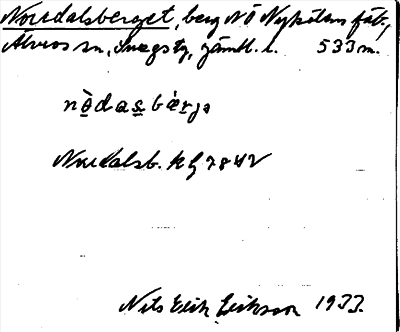 Nordalsberget, berg NÖ Nykölens fäb.,
Älvros sn, Svegs tg, Jämtl. l. 533 m.
nò̤das̤bǽr̤jə
Nordalsb. kg 7842
Nils Erik Erikson 1933.